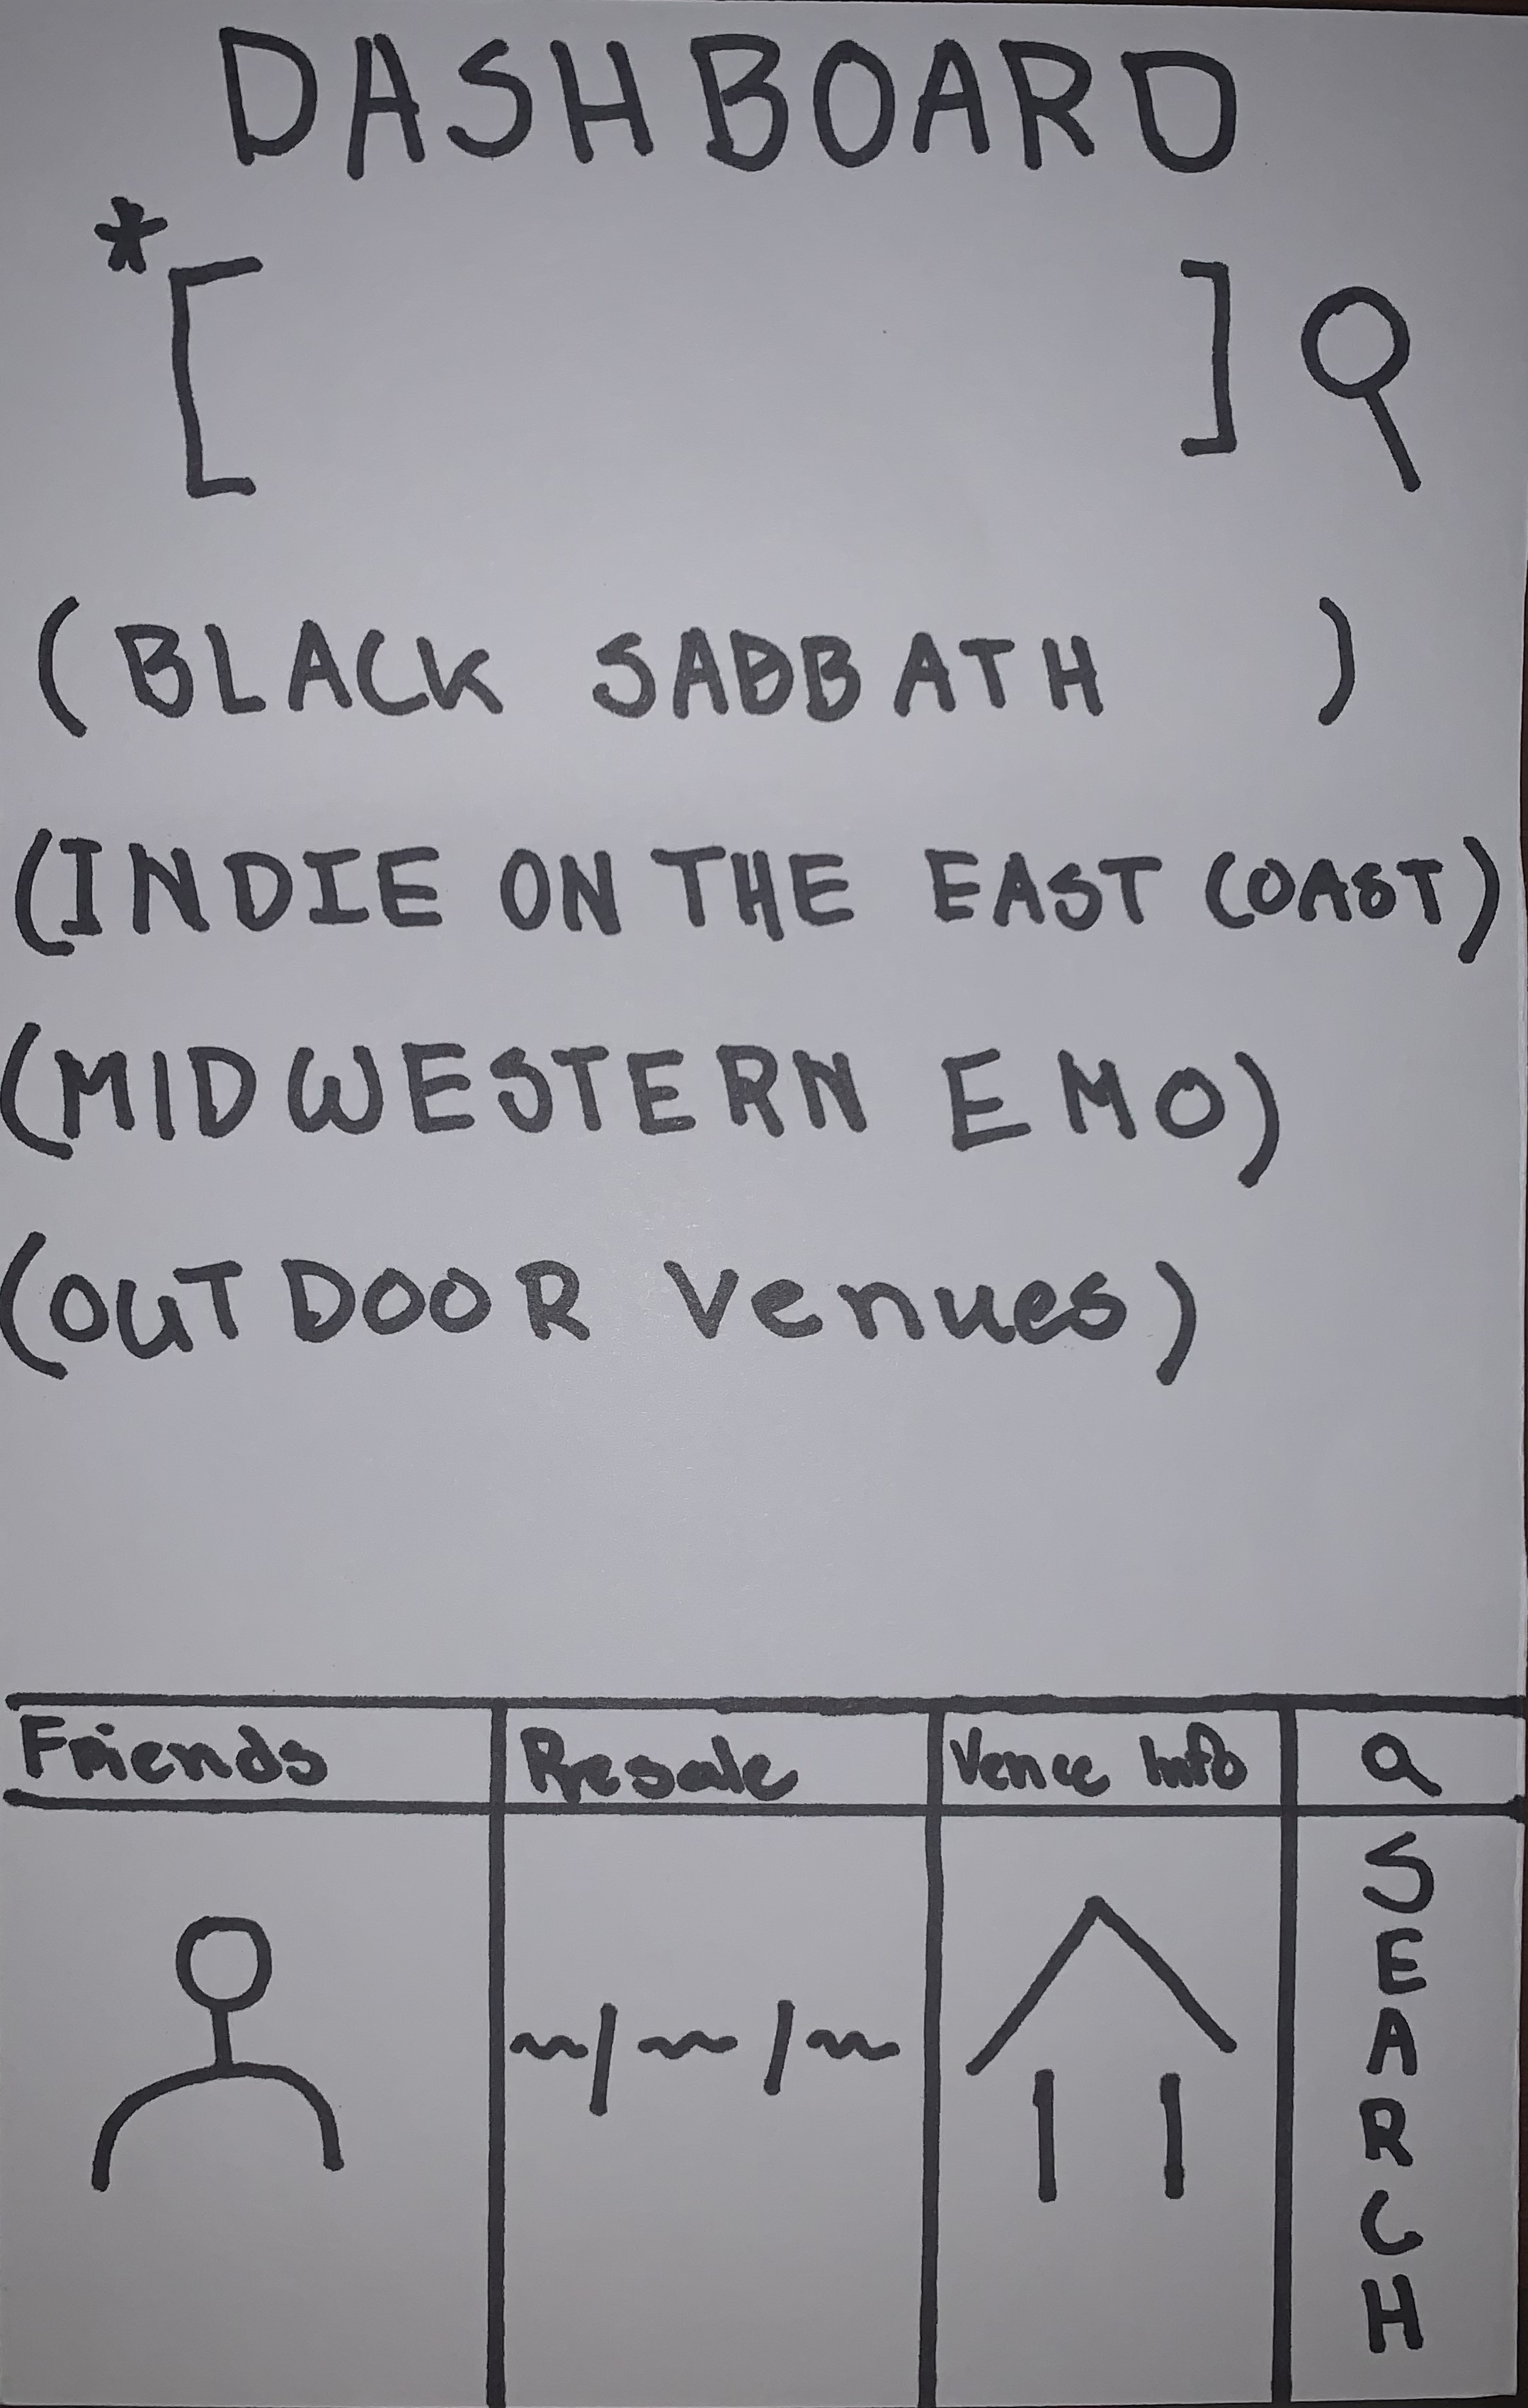 DASHBOARD
*[ ]
(BLACK SABBATH )
(INDIE ON THE EAST COAST)
(MIDWESTERN EMO)
(OUTDOOR Venues)
Friends
Resale
Venue Info
SEARCH